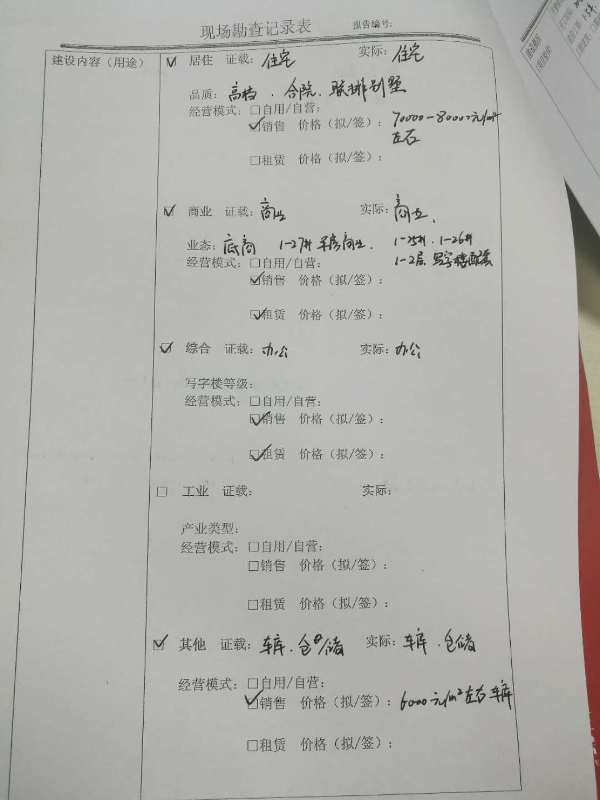 现场勘查记录表 报告编号:
建设内容（用途） ☑ 居住 证载: 住宅 实际: 住宅
品质: 高档. 合院. 联排别墅
经营模式: □自用/自营:
☑销售 价格（拟/签）: 70000-80000元/m²
左右
□租赁 价格（拟/签）:
☑ 商业 证载: 商业 实际: 商业.
业态: 底商 1-27# 商业. 1-25#. 1-26#
经营模式: □自用/自营: 1-2层 写字楼配套
☑销售 价格（拟/签）:
☑租赁 价格（拟/签）:
☑ 综合 证载: 办公 实际: 办公
写字楼等级:
经营模式: □自用/自营:
☑销售 价格（拟/签）:
☑租赁 价格（拟/签）:
□ 工业 证载: 实际:
产业类型:
经营模式: □自用/自营:
□销售 价格（拟/签）:
□租赁 价格（拟/签）:
☑ 其他 证载: 车库. 仓储 实际: 车库. 仓储
经营模式: □自用/自营:
☑销售 价格（拟/签）: 6000元/m²左右 车库
□租赁 价格（拟/签）: